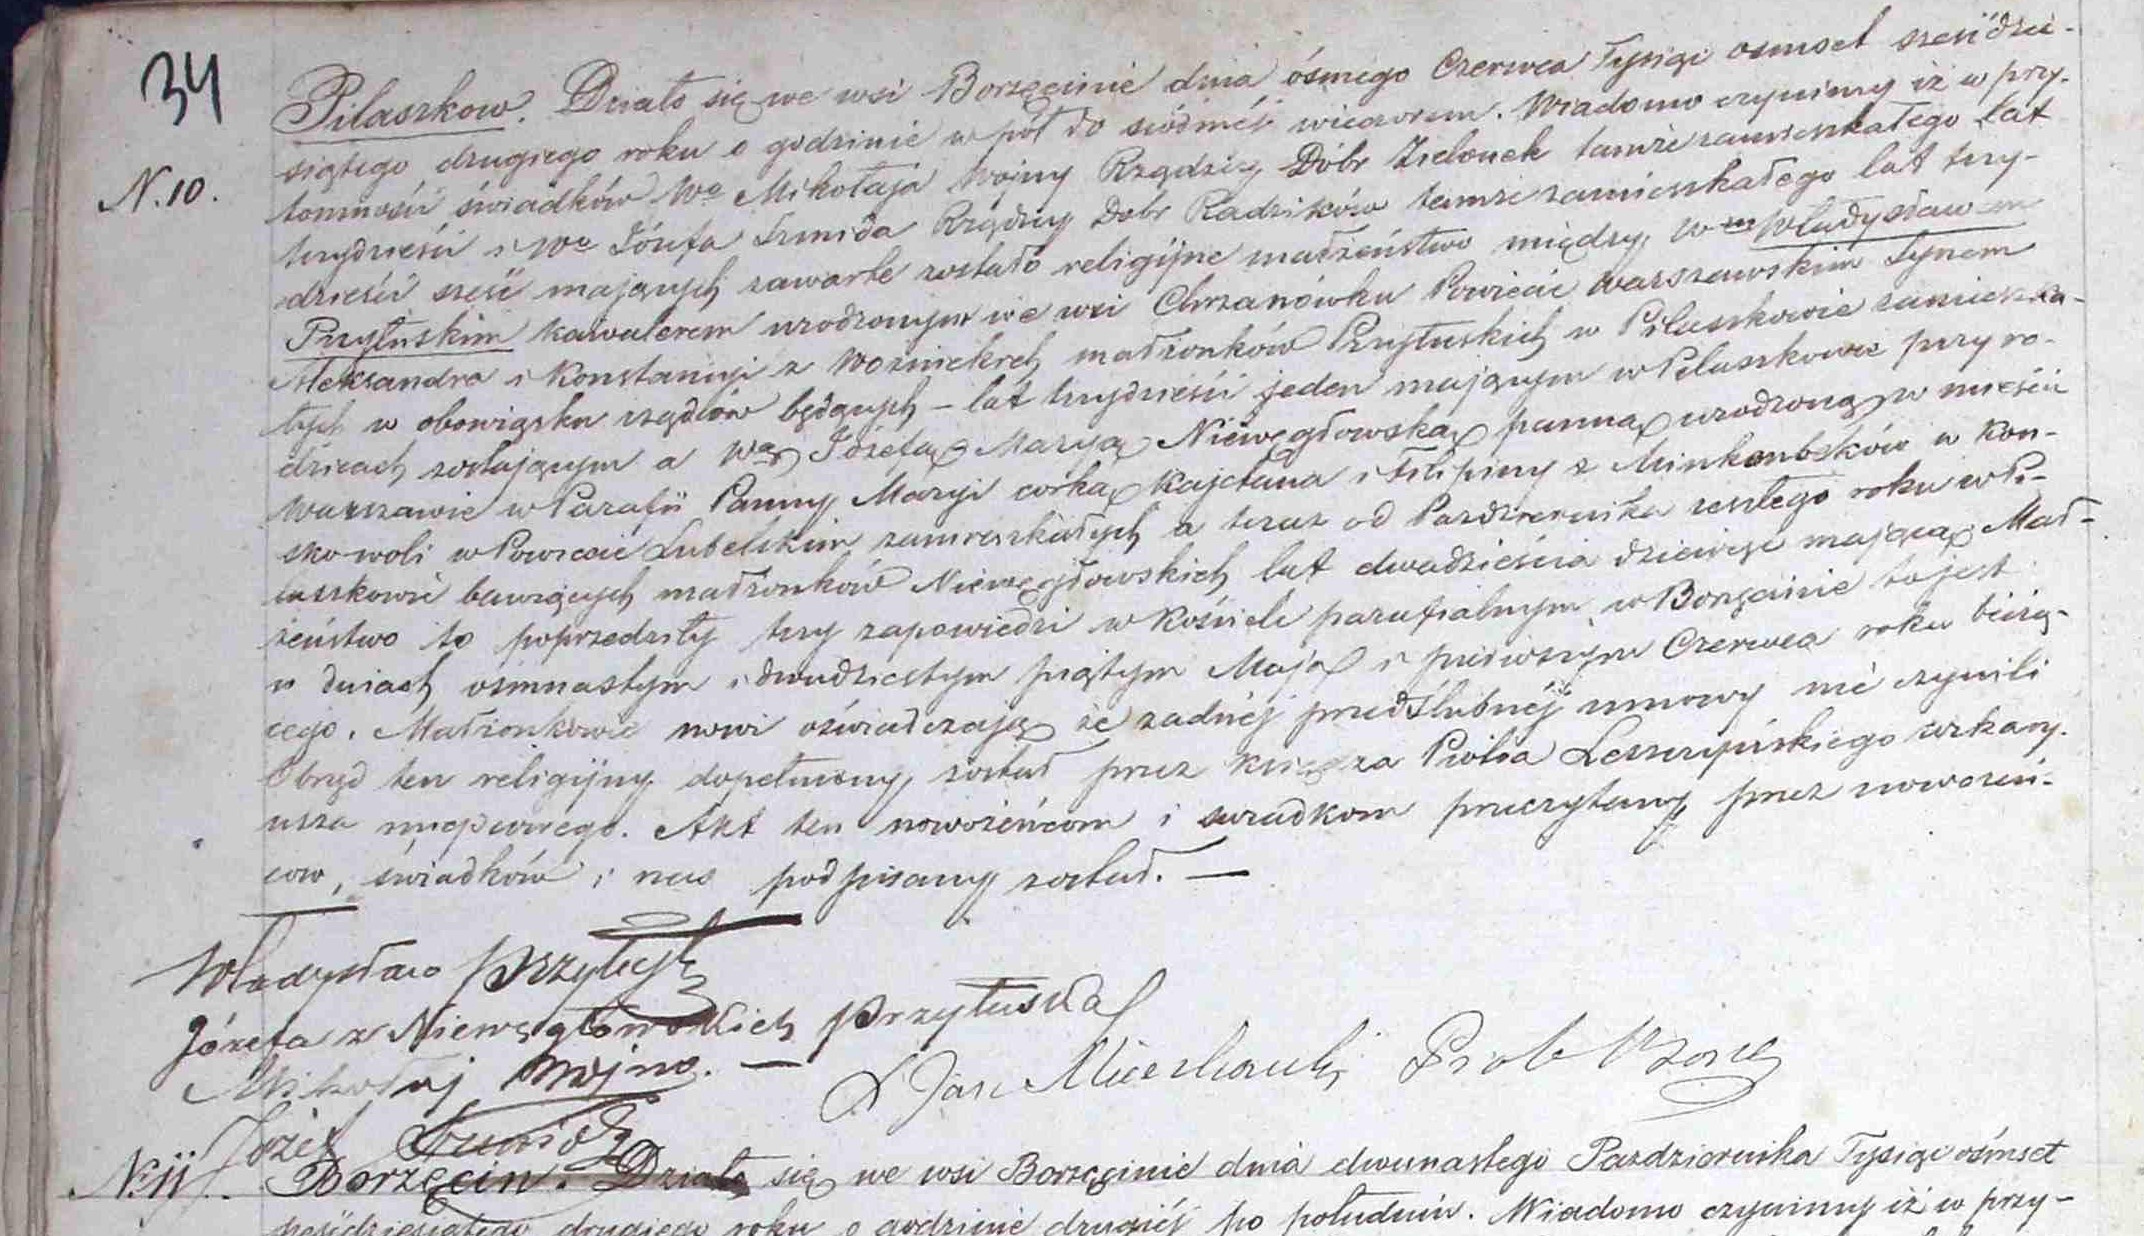 34
Pilaszkow. Działo się we wsi Borzęcinie dnia ósmego Czerwca Tysiąc osmset sześćdzie-
N. 10.
siątego drugiego roku o godzinie w pół do siódméj wieczorem. Wiadomo czynimy iż w przy-
tomności świadków Wo Mikołaja Wojny Rządzcy Dóbr Zielonek tamże zamieszkałego lat
trzydzieści i Wo Józefa Szmida Rządzcy Dóbr Radzików tamże zamieszkałego lat trzy-
dzieści sześć mających zawarte zostało religijne małżeństwo między Wm Władysławem
Przyłuskim kawalerem urodzonym we wsi Chrzanówku Powiecie Warszawskim Synem
Aleksandra i Konstancyi z Woznickich małżonków Przyłuskich w Pilaszkowie zamieszka-
łych w obowiązku rządców będących – lat trzydzieści jeden mającym w Pilaszkowie przy ro-
dzicach zostającym a Wą Józefą Maryą Niewęgłowską panną urodzoną w mieście
Warszawie w Parafii Panny Maryi corką Kajetana i Filipiny z Minkonbsków w Kon-
sko woli w Powiecie Lubelskim zamieszkałych a teraz od Pazdziernika zeszłego roku w Pi-
laszkowie bawiących małżonków Niewęgłowskich lat dwadzieścia dziewięć mającą Mał-
żeństwo to poprzedziły trzy zapowiedzi w kościele parafialnym w Borzęcinie to jest
w dniach ośmnastym i dwudziestym piątym Maja i pierwszym Czerwca roku bieżą-
cego. Małżonkowie nowi oświadczają że żadnéj przedślubnéj umowy nie czynili
Obrząd ten religijny dopełniony został przez księdza Piotra Leszczyńskiego wikary-
usza miejscowego. Akt ten nowożeńcom i swiadkom przeczytany przez nowożeń-
cow, świadków i nas podpisany został. —
Władysław Przyłuski
Józefa z Niewęgłowskich Przyłuska
Mikołaj Wojno. —
X Jan Prob
Józef Szmidt
N. 11. Borzęcin. Działo się we wsi Borzęcinie dnia dwunastego Pazdziernika Tysiąc ośmset
sześćdziesiątego drugiego roku o godzinie drugiéj po południu. Wiadomo czynimy iż w przy-